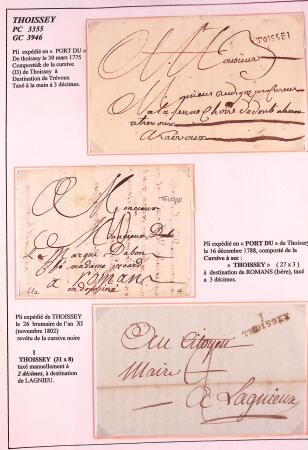 THOISSEY
PC 3355
GC 3946
Pli expédié en « PORT DU »
De thoissey le 30 mars 1775
Composté& de la cursive
(13) de Thoissey à
Destination de Trévoux
Taxé à la main à 3 décimes.
THOISSEI
A Monsieur
A Trevoux
THOISSEY
A Monsieur
Monsieur
Le Marqui Dabon
madame
a Romans
en dophiné
Pli expédié en « PORT DU » de Thoissey
le 16 décembre 1788, composté de la
Cursive à sec :
« THOISSEY » ( 27 x 3 )
à destination de ROMANS (Isère), taxé
a 3 décimes.
Pli expédié de THOISSEY
le 26 brumaire de l'an XI
(novembre 1802)
revêtu de la cursive noire
1
THOISSEY (31 x 8)
taxé manuellement à
2 décimes, à destination
de LAGNIEU.
1
THOISSEY
Au Citoyen
Maire
A Lagnieux